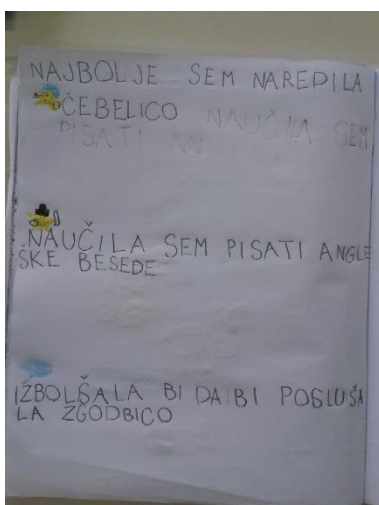 NAJBOLJE SEM NAREDILA
ČEBELICO NAUČILA SEM
PISATI AN
NAUČILA SEM PISATI ANGLE
ŠKE BESEDE
IZBOLŠALA BI DA BI POSLUŠA
LA ZGODBICO